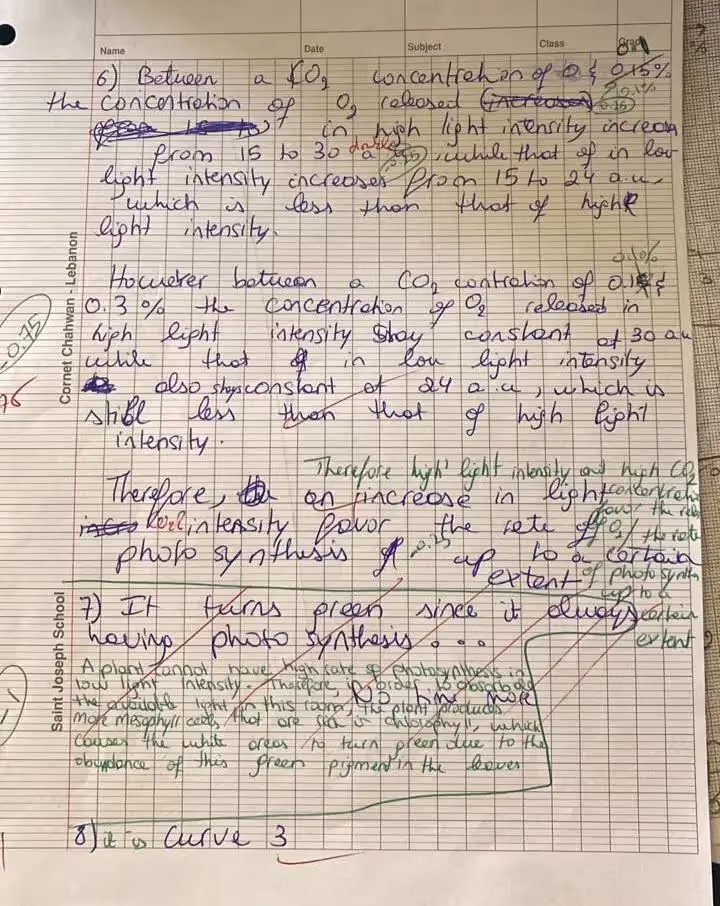 Name Date Subject Class Grade
6) Between a CO2 concentration of 0 & 0.15%
0.1%
the concentration of O2 released (increases) 0.15
in high light intensity increases
from 15 to 30 a.u, while that of in low
light intensity increases from 15 to 24 a.u,
which is less than that of high
light intensity.
0.1%
However between a CO2 contration of 0.1 &
0.3 % the concentration of O2 released in
high light intensity stay constant at 30 au
while that of in low light intensity
also stays constant at 24 a.u, which is
still less than that of high light
intensity.
Therefore high light intensity and high CO2
concentration
favor the rate
of O2/ the rate
of photosynth
up to a
certain
extent
Therefore, an increase in light
level intensity favor the rate of
photo synthesis up to a certain
0.25
extent
7) It turns green since it always
having photo synthesis...
No fine more
A plant cannot have high rate of photosynthesis in
low light intensity. Therefore, in order to absorb all
the available light in this room, the plant produces
more mesophyll cells, that are rich in chlorophyll, which
causes the white areas to turn green due to the
abundance of this green pigment in the leaves
8) it is Curve 3
Cornet Chahwan - Lebanon
Saint Joseph School
-0.75